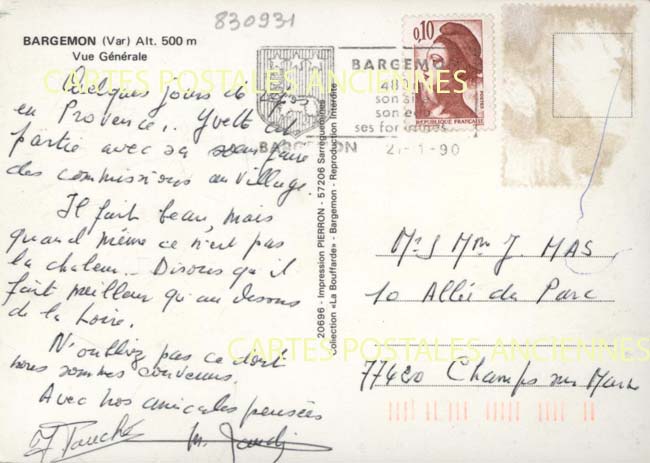 830931
BARGEMON (Var) Alt. 500 m
Vue Générale
CARTES POSTALES ANCIENNES
Quelques jours de repos
en Provence. Yvette est
partie avec sa sœur faire
des commissions au village.
Il fait beau, mais
quand même ce n'est pas
la chaleur... Disons qu'il
fait meilleur qu'au dessus
de la Loire.
N'oubliez pas ce dont
nous sommes convenus.
Avec nos amicales pensées
20696 - Impression PIERRON - 57206 Sarreguemines
Collection «La Bouffarde» - Bargemon - Reproduction Interdite
0,10
POSTES
REPUBLIQUE FRANÇAISE
BARGEMON
son
son
ses
BARGEMON
90
Mr & Mme J. MAS
10 Allée du Parc
77420 Champs sur Marne
CARTES POSTALES ANCIENNES